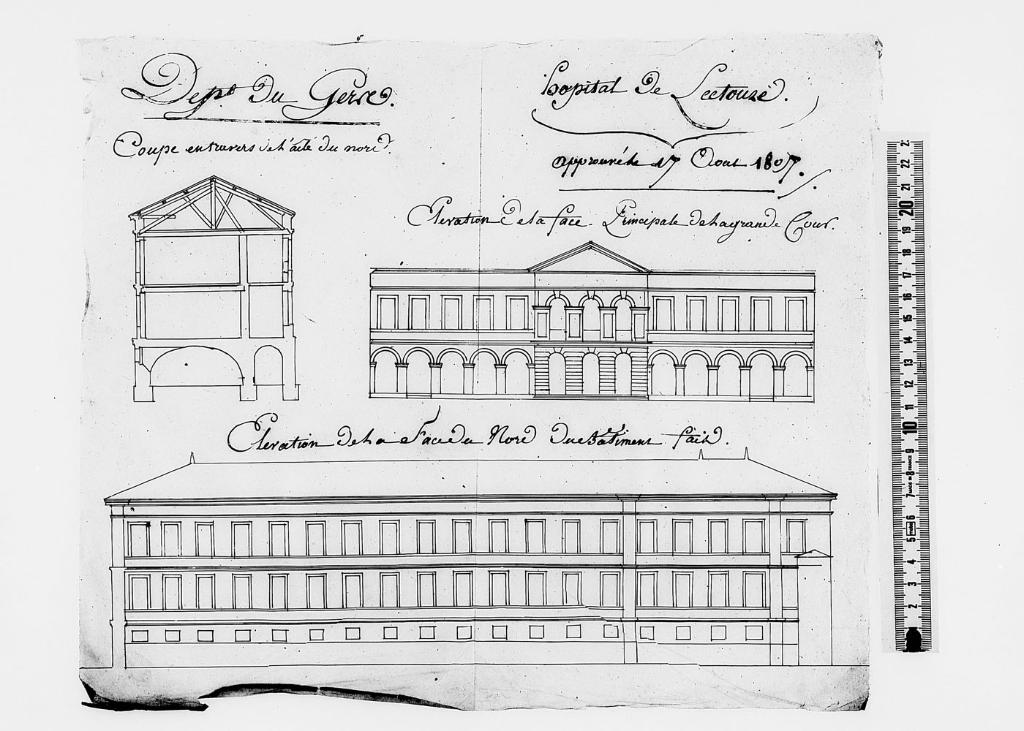 Dept. Du Gers.
hopital De Lectoure.
approuvé le 17 Aout 1807.
Coupe en travers de l'aile du nord.
Elevation de la face Principale de la grande Cour.
Elevation de la Face du Nord du batiment fait.
2 3 4 5 6 7 8 9 10 11 12 13 14 15 16 17 18 19 20 21 22 2